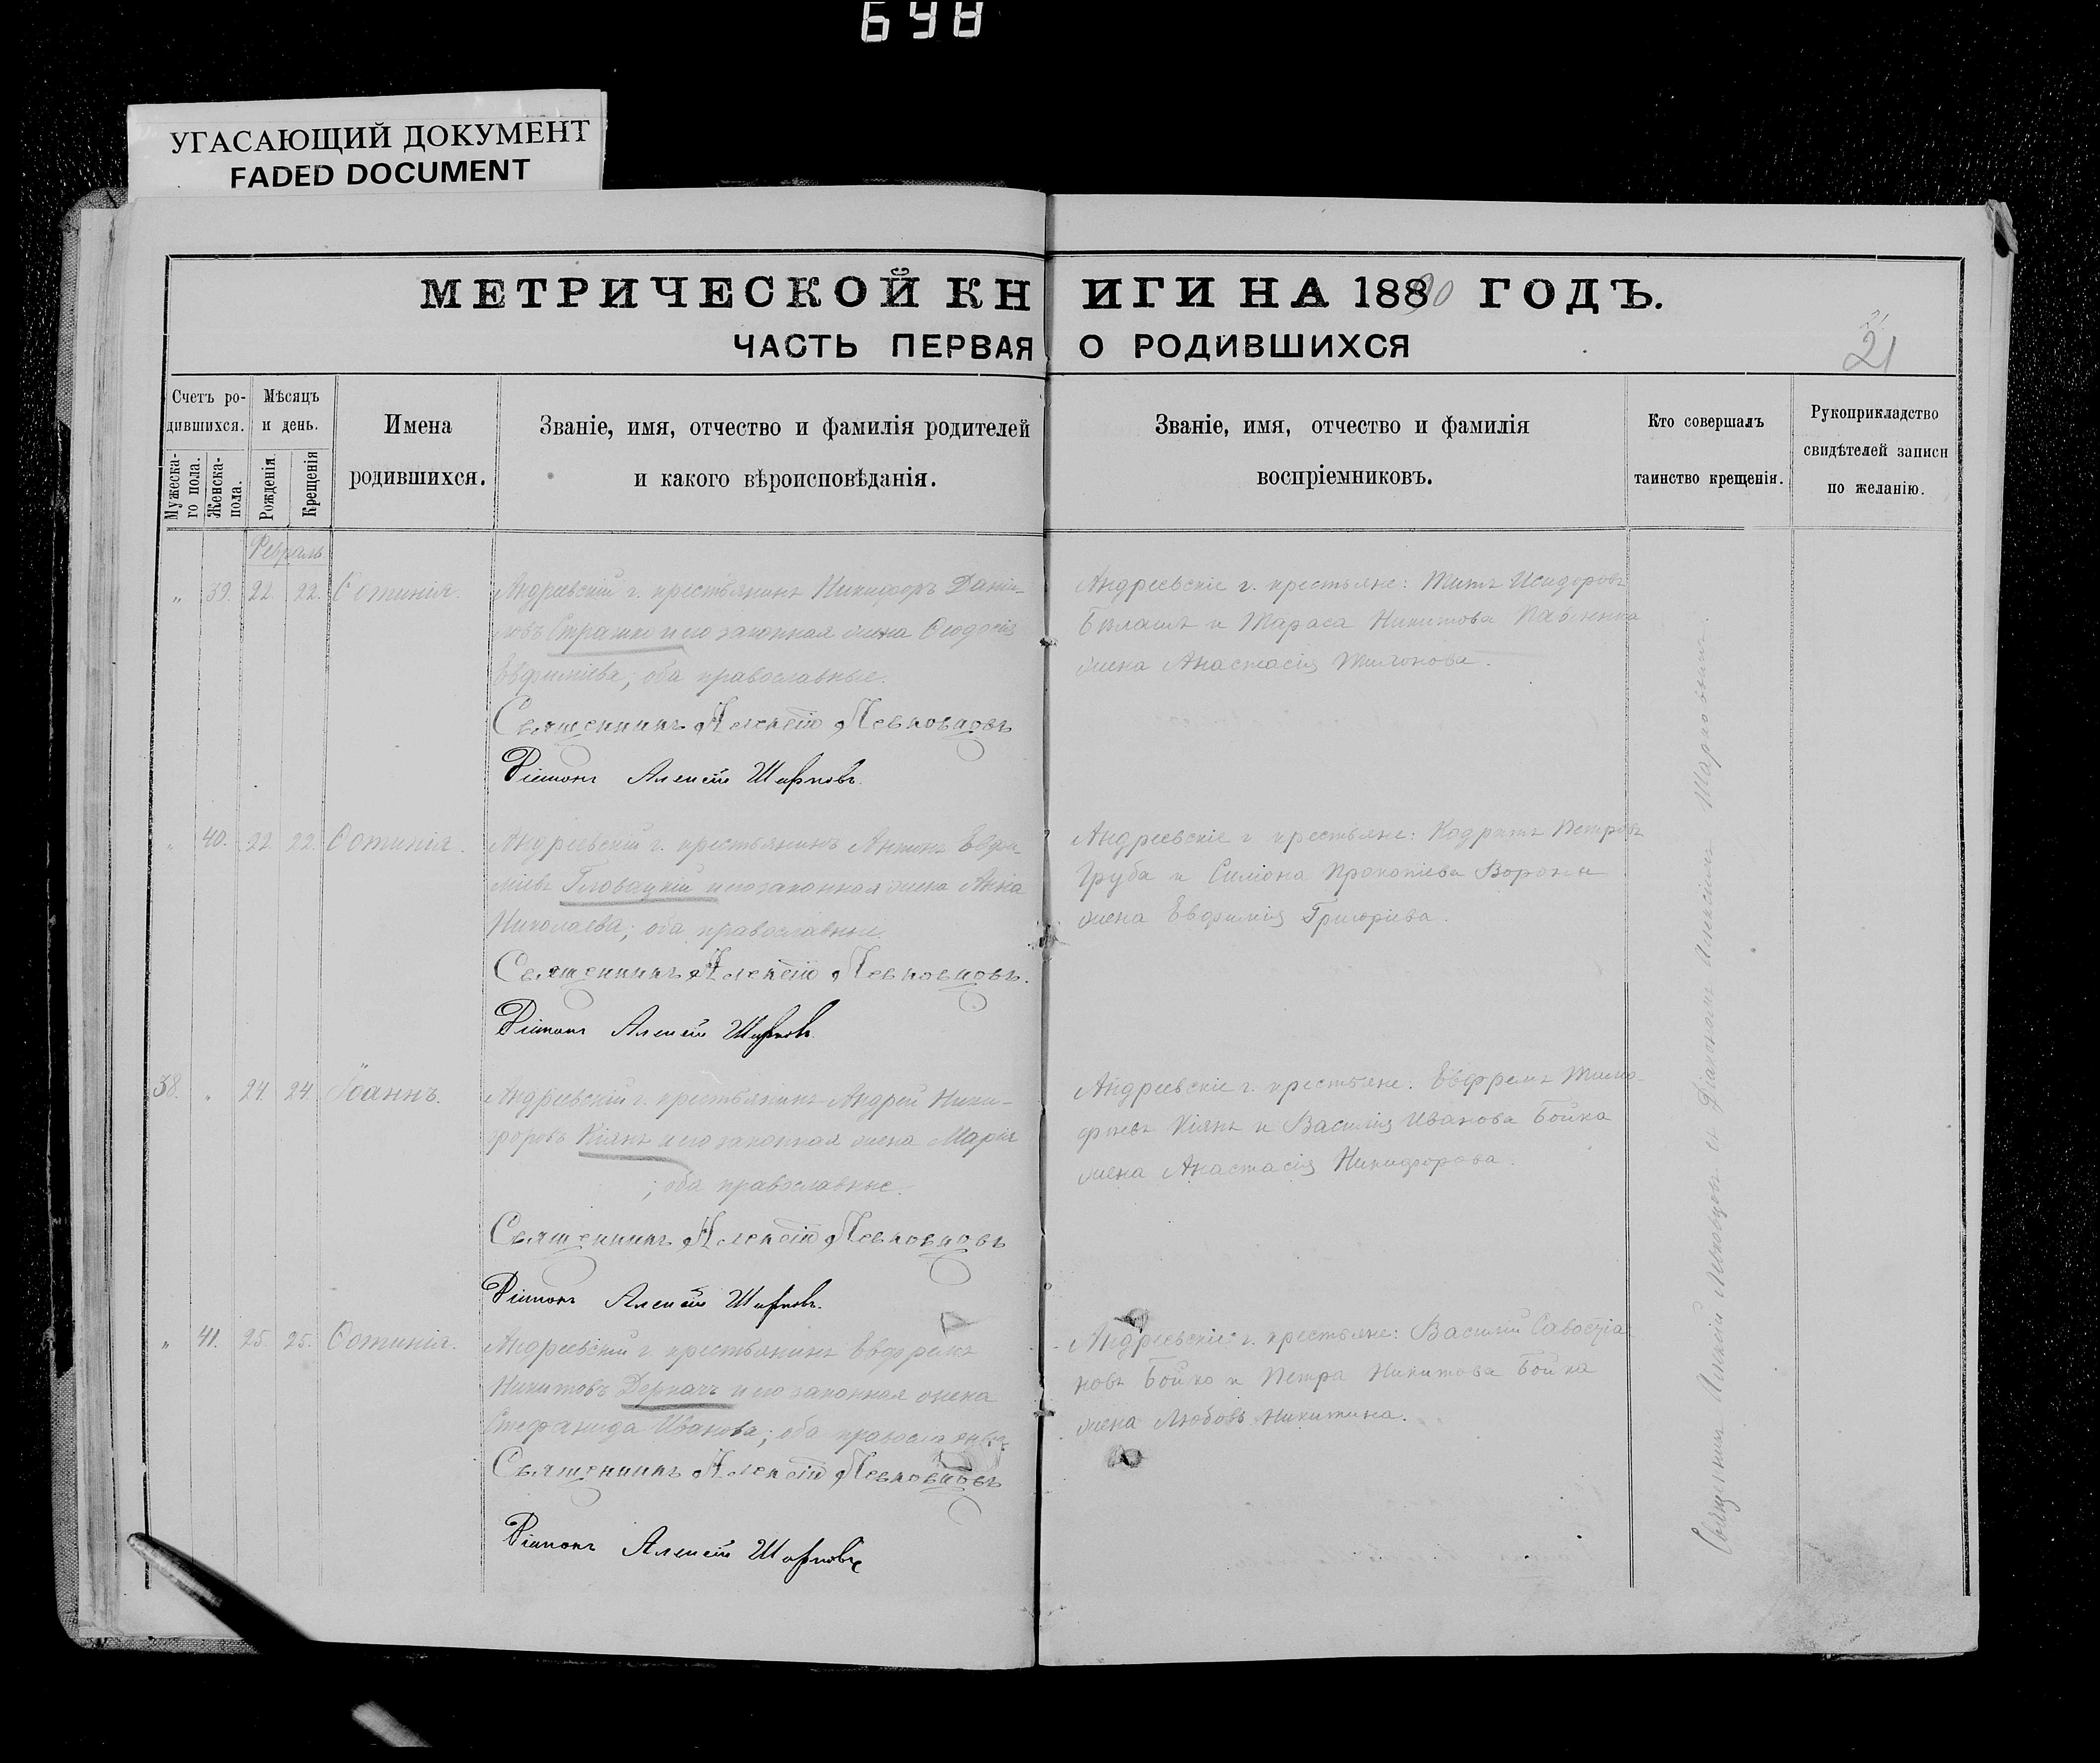 698
УГАСАЮЩИЙ ДОКУМЕНТ
FADED DOCUMENT
МЕТРИЧЕСКОЙ КНИГИ НА 18890 ГОДЪ.
ЧАСТЬ ПЕРВАЯ О РОДИВШИХСЯ
21
21
Счетъ ро-
дившихся.
Мужеска-
го пола.
Женска-
пола.
Мѣсяцъ
и день.
Рожденія.
Крещенія
Имена
родившихся.
Званіе, имя, отчество и фамилія родителей
и какого вѣроисповѣданія.
Званіе, имя, отчество и фамилія
воспріемниковъ.
Кто совершалъ
таинство крещенія.
Рукоприкладство
свидѣтелей записи
по желанію.
Февраль
„ 39. 22. 22. Фотинія.
Андреевскій г. крестьянинъ Никифоръ Дані-
ловъ Страшко и его законная жена Ѳеодосія
Евфиміева; оба православные.
Священникъ Алексій Левковцовъ
Діаконъ Алексій Шарковъ.
Андреевскіе г. крестьяне: Титъ Исидоровъ
Бѣлашъ и Тараса Никитова
жена Анастасія Тихонова.
„ 40. 22. 22. Фотинія.
Андреевскій г. крестьянинъ Антонъ Евфи-
міевъ Гловацкій и его законная жена Анна
Николаева; оба православные.
Священникъ Алексій Левковцовъ.
Діаконъ Алексій Шарковъ.
Андреевскіе г. крестьяне: Кодратъ Петровъ
Груба и Симіона Прокопіева Вороны
жена Евфимія Григоріева.
38. „ 24. 24. Іоаннъ.
Андреевскій г. крестьянинъ Андрей Ники-
форовъ Кіянъ и его законная жена Марія
; оба православные.
Священникъ Алексій Левковцовъ
Діаконъ Алексій Шарковъ.
Андреевскіе г. крестьяне: Евфремъ Тимо-
фѣевъ Кіянъ и Василія Иванова Бойка
жена Анастасія Никифорова.
„ 41. 25. 25. Фотинія.
Андреевскій г. крестьянинъ Евфремъ
Никитовъ Деркачъ и его законная жена
Стефанида Иванова; оба православные
Священникъ Алексій Левковцовъ
Діаконъ Алексій Шарковъ
Андреевскіе г. крестьяне: Василій Савостіа-
новъ Бойко и Петра Никитова Бойка
жена Любовь Никитина.
Священникъ Алексій Левковцовъ съ Діакономъ Алексіемъ Шарковымъ.